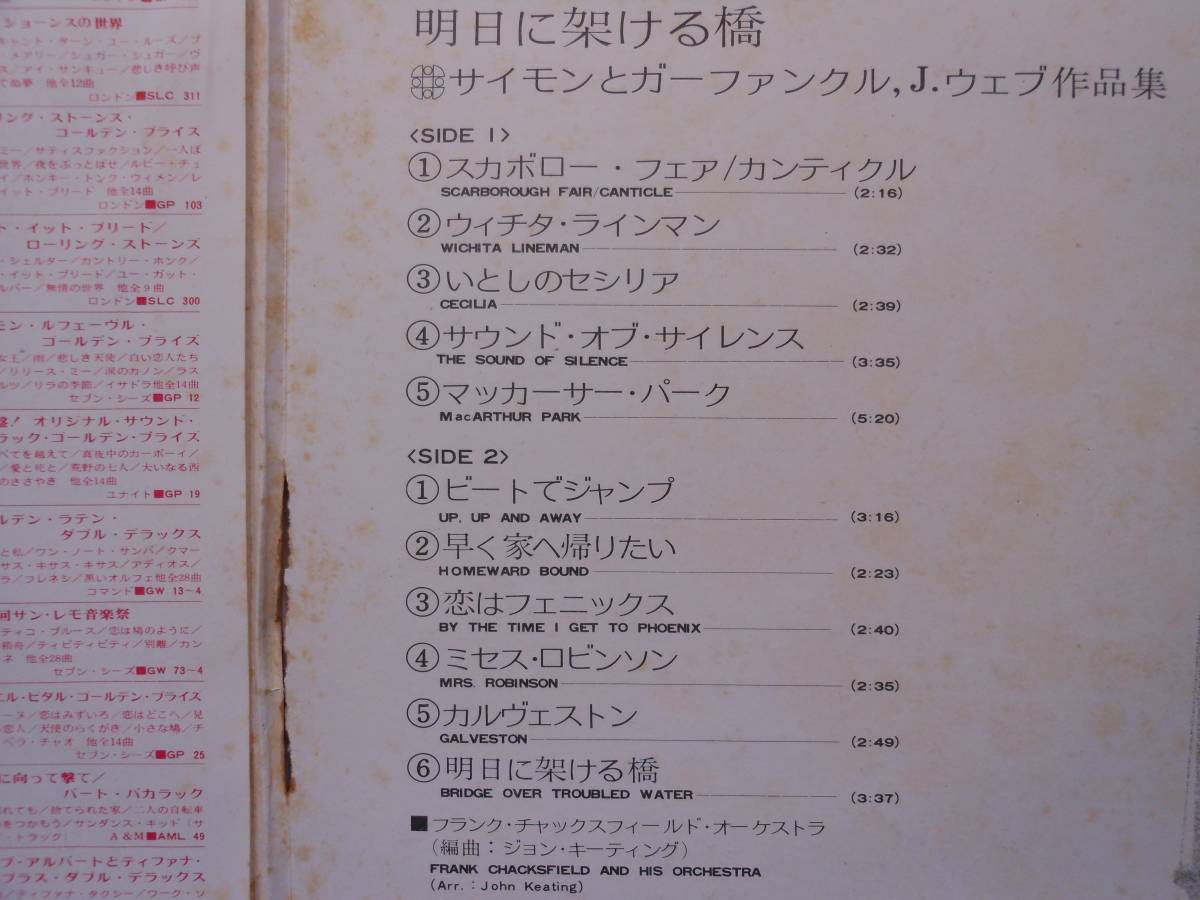 ショーンズの世界
ロンドン■SLC 311
リング・ストーンズ・
ゴールデン・プライス
ミー/サティスファクション/一人ぼ
世界/夜をぶっとばせ/ルビー・チュ
イ/ホンキー・トンク・ウィメン/レ
イット・ブリード 他全14曲
ロンドン■GP 103
ト・イット・ブリード/
ローリング・ストーンズ
・シェルター/カントリー・ホンク/
・イット・ブリード/ユー・ガット・
ルバー/無情の世界 他全9曲
ロンドン■SLC 300
モン・ルフェーヴル・
ゴールデン・プライス
女王/雨/悲しき天使/白い恋人たち
/リリース・ミー/涙のカノン/ラス
ルツ/リラの季節/イサドラ他全14曲
セブン・シーズ■GP 12
盤! オリジナル・サウンド・
ラック・ゴールデン・プライス
べてを越えて/真夜中のカーボーイ/
/愛と死と/荒野の七人/大いなる西
のささやき 他全14曲
ユナイト■GP 19
ルデン・ラテン・
ダブル・デラックス
と私/ワン・ノート・サンバ/クマー
サス・キサス・キサス/アディオス/
ラ/フレネシ/黒いオルフェ他全28曲
コマンド■GW 13~4
回サン・レモ音楽祭
ティコ・ブルース/恋は鳩のように/
箱舟/ティピティピティ/別離/カン
ネ 他全28曲
セブン・シーズ■GW 73~4
エル・ビダル・ゴールデン・プライス
ーヌ/恋はみずいろ/恋はどこへ/見
恋人/天使のらくがき/小さな鳩/チ
ベラ・チャオ 他全14曲
セブン・シーズ■GP 25
に向って撃て/
バート・バカラック
れても/捨てられた家/二人の自転車
をつかもう/サンダンス・キッド(サ
ドトラック) A&M■AML 49
ブ・アルパートとティファナ・
ブラス・ダブル・デラックス
/ティファナ・タクシー/ワーク・ソ
明日に架ける橋
サイモンとガーファンクル, J.ウェブ作品集
〈SIDE 1〉
①スカボロー・フェア/カンティクル
SCARBOROUGH FAIR/CANTICLE (2:16)
②ウィチタ・ラインマン
WICHITA LINEMAN (2:32)
③いとしのセシリア
CECILIA (2:39)
④サウンド・オブ・サイレンス
THE SOUND OF SILENCE (3:35)
⑤マッカーサー・パーク
MacARTHUR PARK (5:20)
〈SIDE 2〉
①ビートでジャンプ
UP, UP AND AWAY (3:16)
②早く家へ帰りたい
HOMEWARD BOUND (2:23)
③恋はフェニックス
BY THE TIME I GET TO PHOENIX (2:40)
④ミセス・ロビンソン
MRS. ROBINSON (2:35)
⑤カルヴェストン
GALVESTON (2:49)
⑥明日に架ける橋
BRIDGE OVER TROUBLED WATER (3:37)
■フランク・チャックスフィールド・オーケストラ
(編曲:ジョン・キーティング)
FRANK CHACKSFIELD AND HIS ORCHESTRA
(Arr. : John Keating)